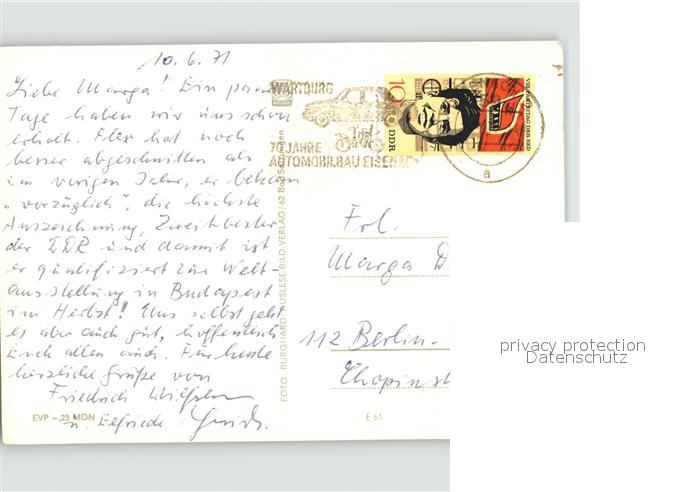 10.6.71
Liebe Marga! Ein paar
Tage haben wir uns schon
erholt. Fler hat noch
besser abgeschnitten als
im vorigen Jahr, er bekam
"vorzüglich", die höchste
Auszeichnung, Zweitbester
der DDR und damit ist
er qualifiziert zur Welt-
ausstellung in Budapest
im Herbst! Uns selbst geht
es aber auch gut, hoffentlich
Euch allen auch. Für heute
herzliche Grüße von
Friedrich Wilhelm
u. Elfriede
EVP -,25 MDN
FOTO: BURGHARD AUSLESE-BILD-VERLAG / 62 Bad
WARTBURG
70 JAHRE
AUTOMOBILBAU EISENACH
10
DDR
VIII. PARTEITAG DER SED
a
Frl.
Marga D
112 Berlin-
Chopinst
E 61
privacy protection
Datenschutz